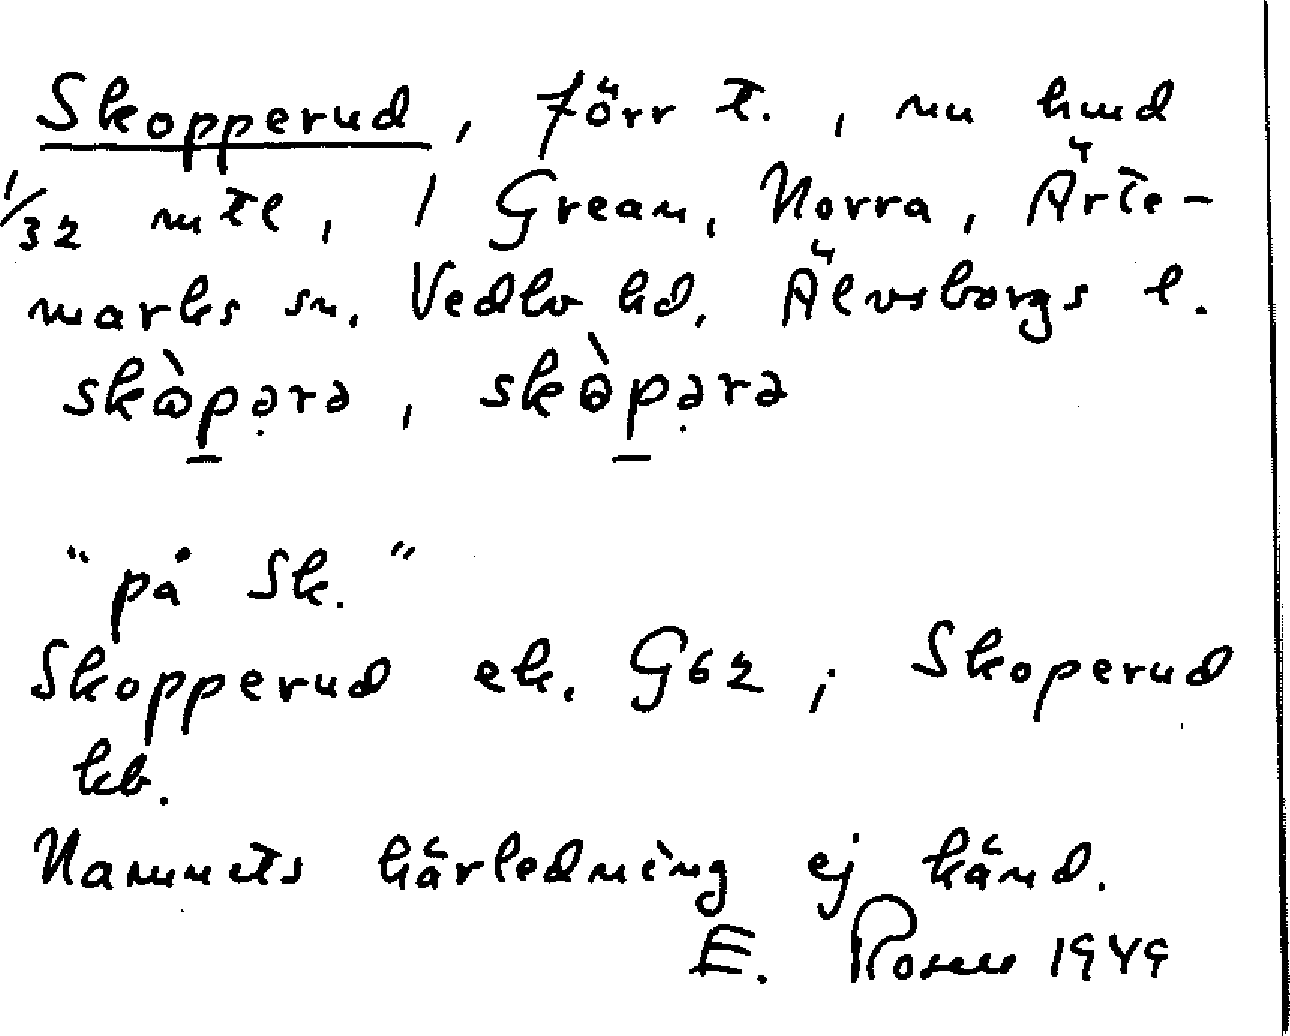 Skopperud, förr t., nu hmd
1/32 mtl, i Grean, Norra, Ärte-
marks sn. Vedbo hd. Älvsborgs l.
skòpərə, skòpərə
"på Sk."
Skopperud ek. G62; Skoperud
kb.
Namnets härledning ej känd.
E. Rosell 1949